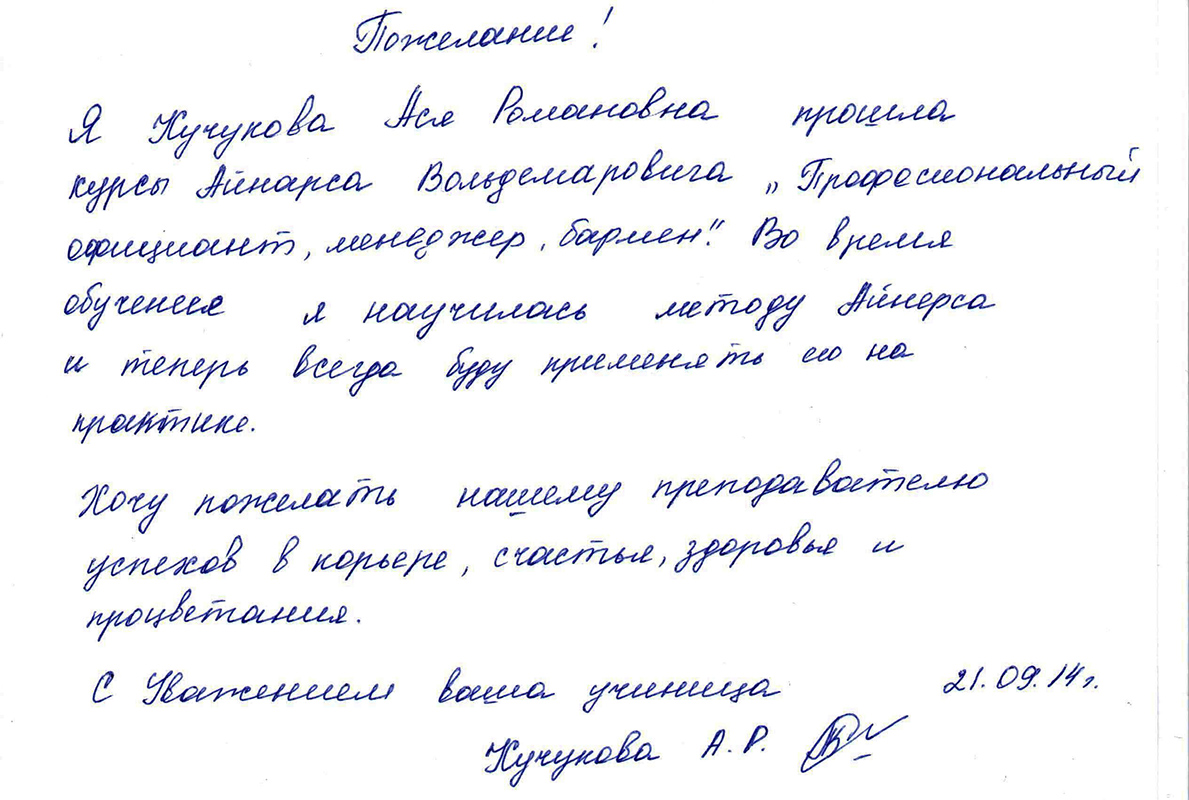 Пожелание!
Я Кучукова Ася Романовна прошла
курсы Айнарса Вольдемаровича „Професиональный
официант, менеджер, бармен". Во время
обучения я научилась методу Айнерса
и теперь всегда буду применять его на
практике.
Хочу пожелать нашему преподавателю
успехов в корьере, счастья, здоровья и
процветания.
С Уважением ваша ученица 21.09.14г.
Кучукова А.Р.